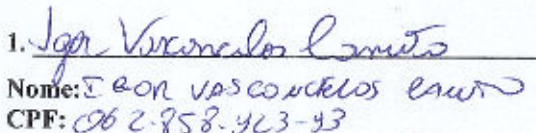 1. Igor Vasconcelos Canuto
Nome: IGOR VASCONCELOS CANUTO
CPF: 062.858.423-43